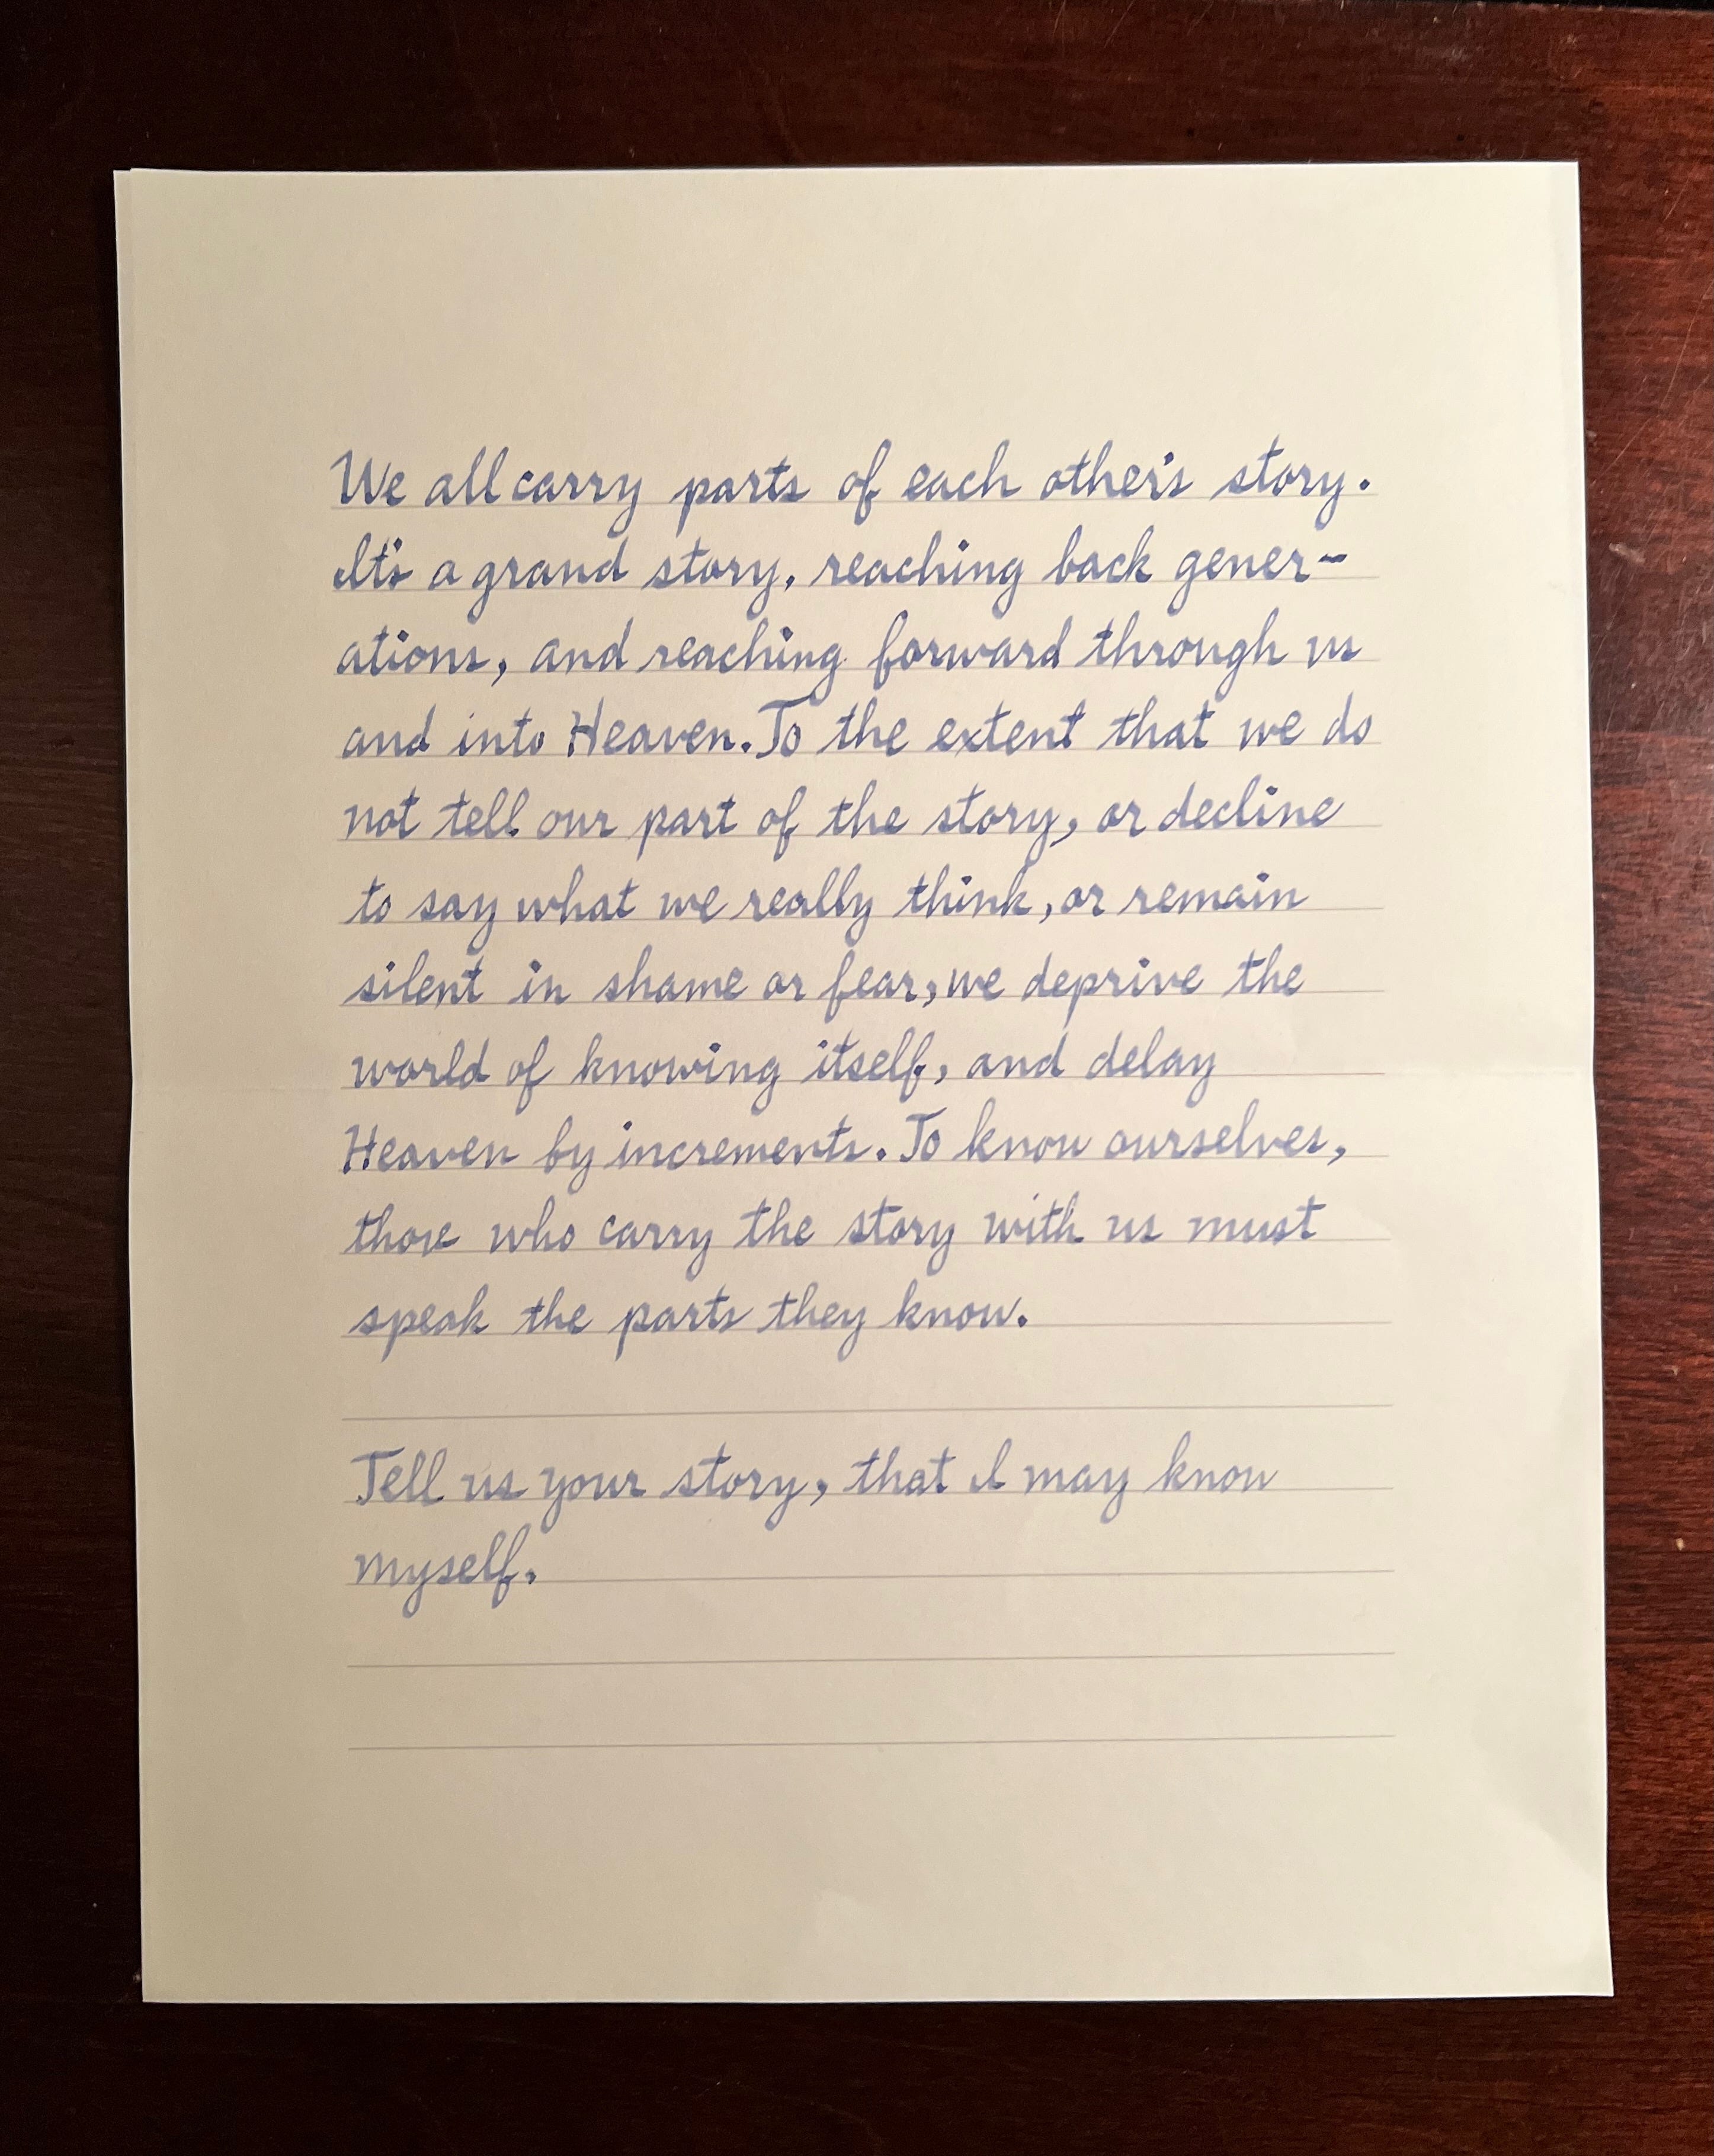 We all carry parts of each other's story.
It's a grand story, reaching back gener-
ations, and reaching forward through us
and into Heaven. To the extent that we do
not tell our part of the story, or decline
to say what we really think, or remain
silent in shame or fear, we deprive the
world of knowing itself, and delay
Heaven by increments. To know ourselves,
those who carry the story with us must
speak the parts they know.
Tell us your story, that I may know
myself.